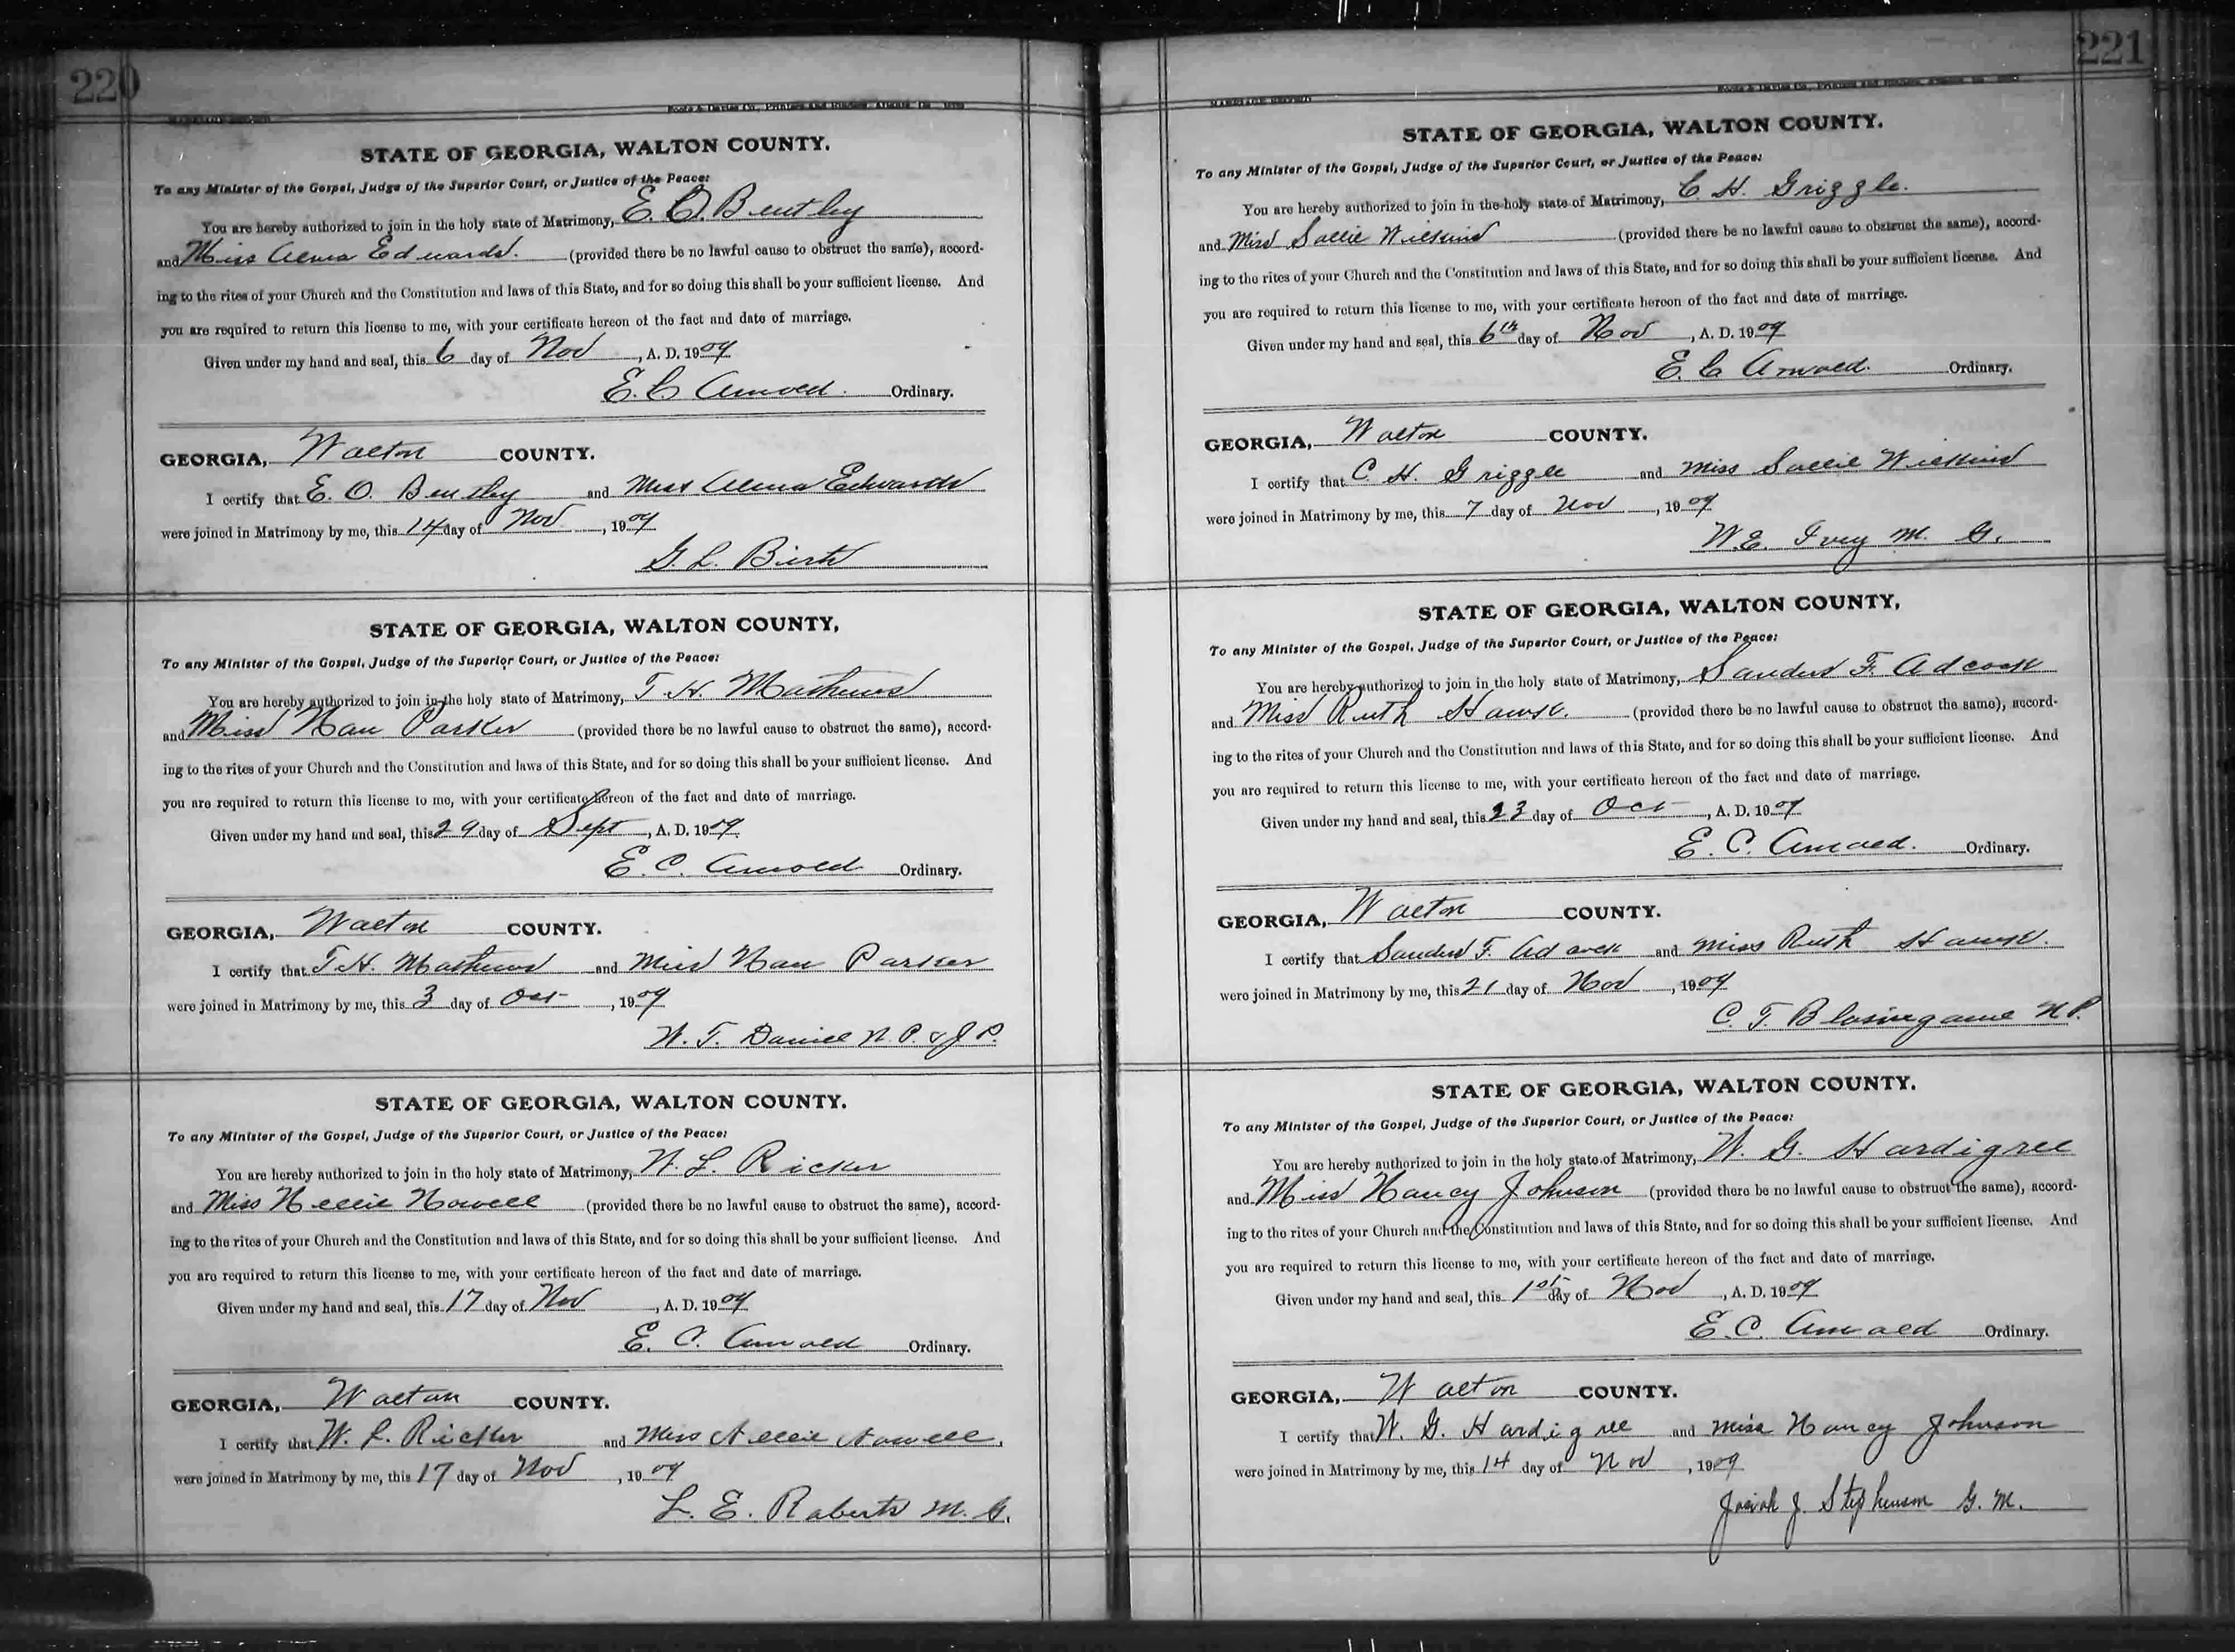 220
STATE OF GEORGIA, WALTON COUNTY.
To any Minister of the Gospel, Judge of the Superior Court, or Justice of the Peace:
You are hereby authorized to join in the holy state of Matrimony, E. O. Bentley
and Miss Alma Edwards. (provided there be no lawful cause to obstruct the same), accord-
ing to the rites of your Church and the Constitution and laws of this State, and for so doing this shall be your sufficient license. And
you are required to return this license to me, with your certificate hereon of the fact and date of marriage.
Given under my hand and seal, this 6 day of Nov, A. D. 1909
E. C. Arnold. Ordinary.
GEORGIA, Walton COUNTY.
I certify that E. O. Bentley and Miss Alma Edwards
were joined in Matrimony by me, this 14 day of Nov, 1909
G. L.
STATE OF GEORGIA, WALTON COUNTY,
To any Minister of the Gospel, Judge of the Superior Court, or Justice of the Peace:
You are hereby authorized to join in the holy state of Matrimony, T. H. Mathews
and Miss Nan Parker (provided there be no lawful cause to obstruct the same), accord-
ing to the rites of your Church and the Constitution and laws of this State, and for so doing this shall be your sufficient license. And
you are required to return this license to me, with your certificate hereon of the fact and date of marriage.
Given under my hand and seal, this 29 day of Sept, A. D. 1909
E. C. Arnold Ordinary.
GEORGIA, Walton COUNTY.
I certify that T. H. Mathews and Miss Nan Parker
were joined in Matrimony by me, this 3 day of Oct, 1909
W. T. Daniel N. P. & J P.
STATE OF GEORGIA, WALTON COUNTY.
To any Minister of the Gospel, Judge of the Superior Court, or Justice of the Peace:
You are hereby authorized to join in the holy state of Matrimony, W. L. Ricker
and Miss Nellie Nowell (provided there be no lawful cause to obstruct the same), accord-
ing to the rites of your Church and the Constitution and laws of this State, and for so doing this shall be your sufficient license. And
you are required to return this license to me, with your certificate hereon of the fact and date of marriage.
Given under my hand and seal, this 17 day of Nov, A. D. 1909
E. C. Arnold Ordinary.
GEORGIA, Walton COUNTY.
I certify that W. L. Ricker and Miss Nellie Nowell,
were joined in Matrimony by me, this 17 day of Nov, 1909
L. E. Roberts M. G.
221
STATE OF GEORGIA, WALTON COUNTY.
To any Minister of the Gospel, Judge of the Superior Court, or Justice of the Peace:
You are hereby authorized to join in the holy state of Matrimony, C. H. Grizzle.
and Miss Sallie Wilkins (provided there be no lawful cause to obstruct the same), accord-
ing to the rites of your Church and the Constitution and laws of this State, and for so doing this shall be your sufficient license. And
you are required to return this license to me, with your certificate hereon of the fact and date of marriage.
Given under my hand and seal, this 6th day of Nov, A. D. 1909
E. C. Arnold. Ordinary.
GEORGIA, Walton COUNTY.
I certify that C. H. Grizzle and Miss Sallie Wilkins
were joined in Matrimony by me, this 7 day of Nov, 1909
W. E. Ivey M. G.
STATE OF GEORGIA, WALTON COUNTY,
To any Minister of the Gospel, Judge of the Superior Court, or Justice of the Peace:
You are hereby authorized to join in the holy state of Matrimony, Sanders F. Adcock
and Miss Ruth Hawk. (provided there be no lawful cause to obstruct the same), accord-
ing to the rites of your Church and the Constitution and laws of this State, and for so doing this shall be your sufficient license. And
you are required to return this license to me, with your certificate hereon of the fact and date of marriage.
Given under my hand and seal, this 23 day of Oct, A. D. 1909
E. C. Arnold. Ordinary.
GEORGIA, Walton COUNTY.
I certify that Sanders F. Adcock and Miss Ruth Hawk.
were joined in Matrimony by me, this 21 day of Nov, 1909
C. T. Blasingame N P.
STATE OF GEORGIA, WALTON COUNTY.
To any Minister of the Gospel, Judge of the Superior Court, or Justice of the Peace:
You are hereby authorized to join in the holy state of Matrimony, W. G. Hardigree
and Miss Nancy Johnson (provided there be no lawful cause to obstruct the same), accord-
ing to the rites of your Church and the Constitution and laws of this State, and for so doing this shall be your sufficient license. And
you are required to return this license to me, with your certificate hereon of the fact and date of marriage.
Given under my hand and seal, this 1st day of Nov, A. D. 1909
E. C. Arnold Ordinary.
GEORGIA, Walton COUNTY.
I certify that W. G. Hardigree and Miss Nancy Johnson
were joined in Matrimony by me, this 14 day of Nov, 1909
Josiah J. Stephenson G. M.